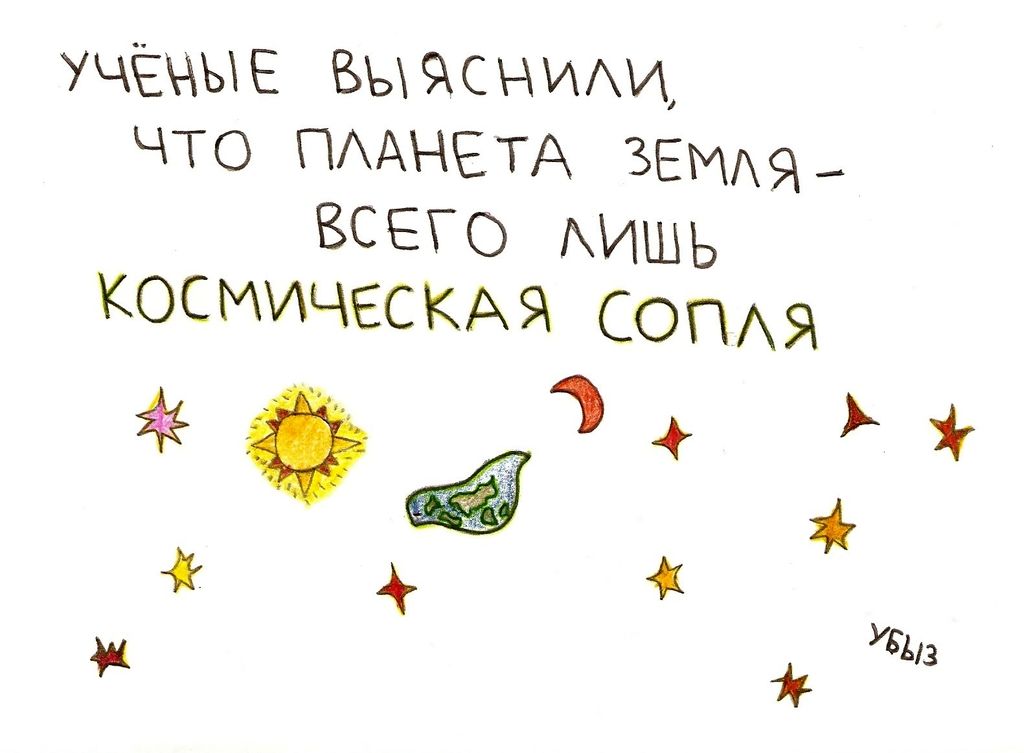 УЧЁНЫЕ ВЫЯСНИЛИ,
ЧТО ПЛАНЕТА ЗЕМЛЯ –
ВСЕГО ЛИШЬ
КОСМИЧЕСКАЯ СОПЛЯ
УБЫЗ